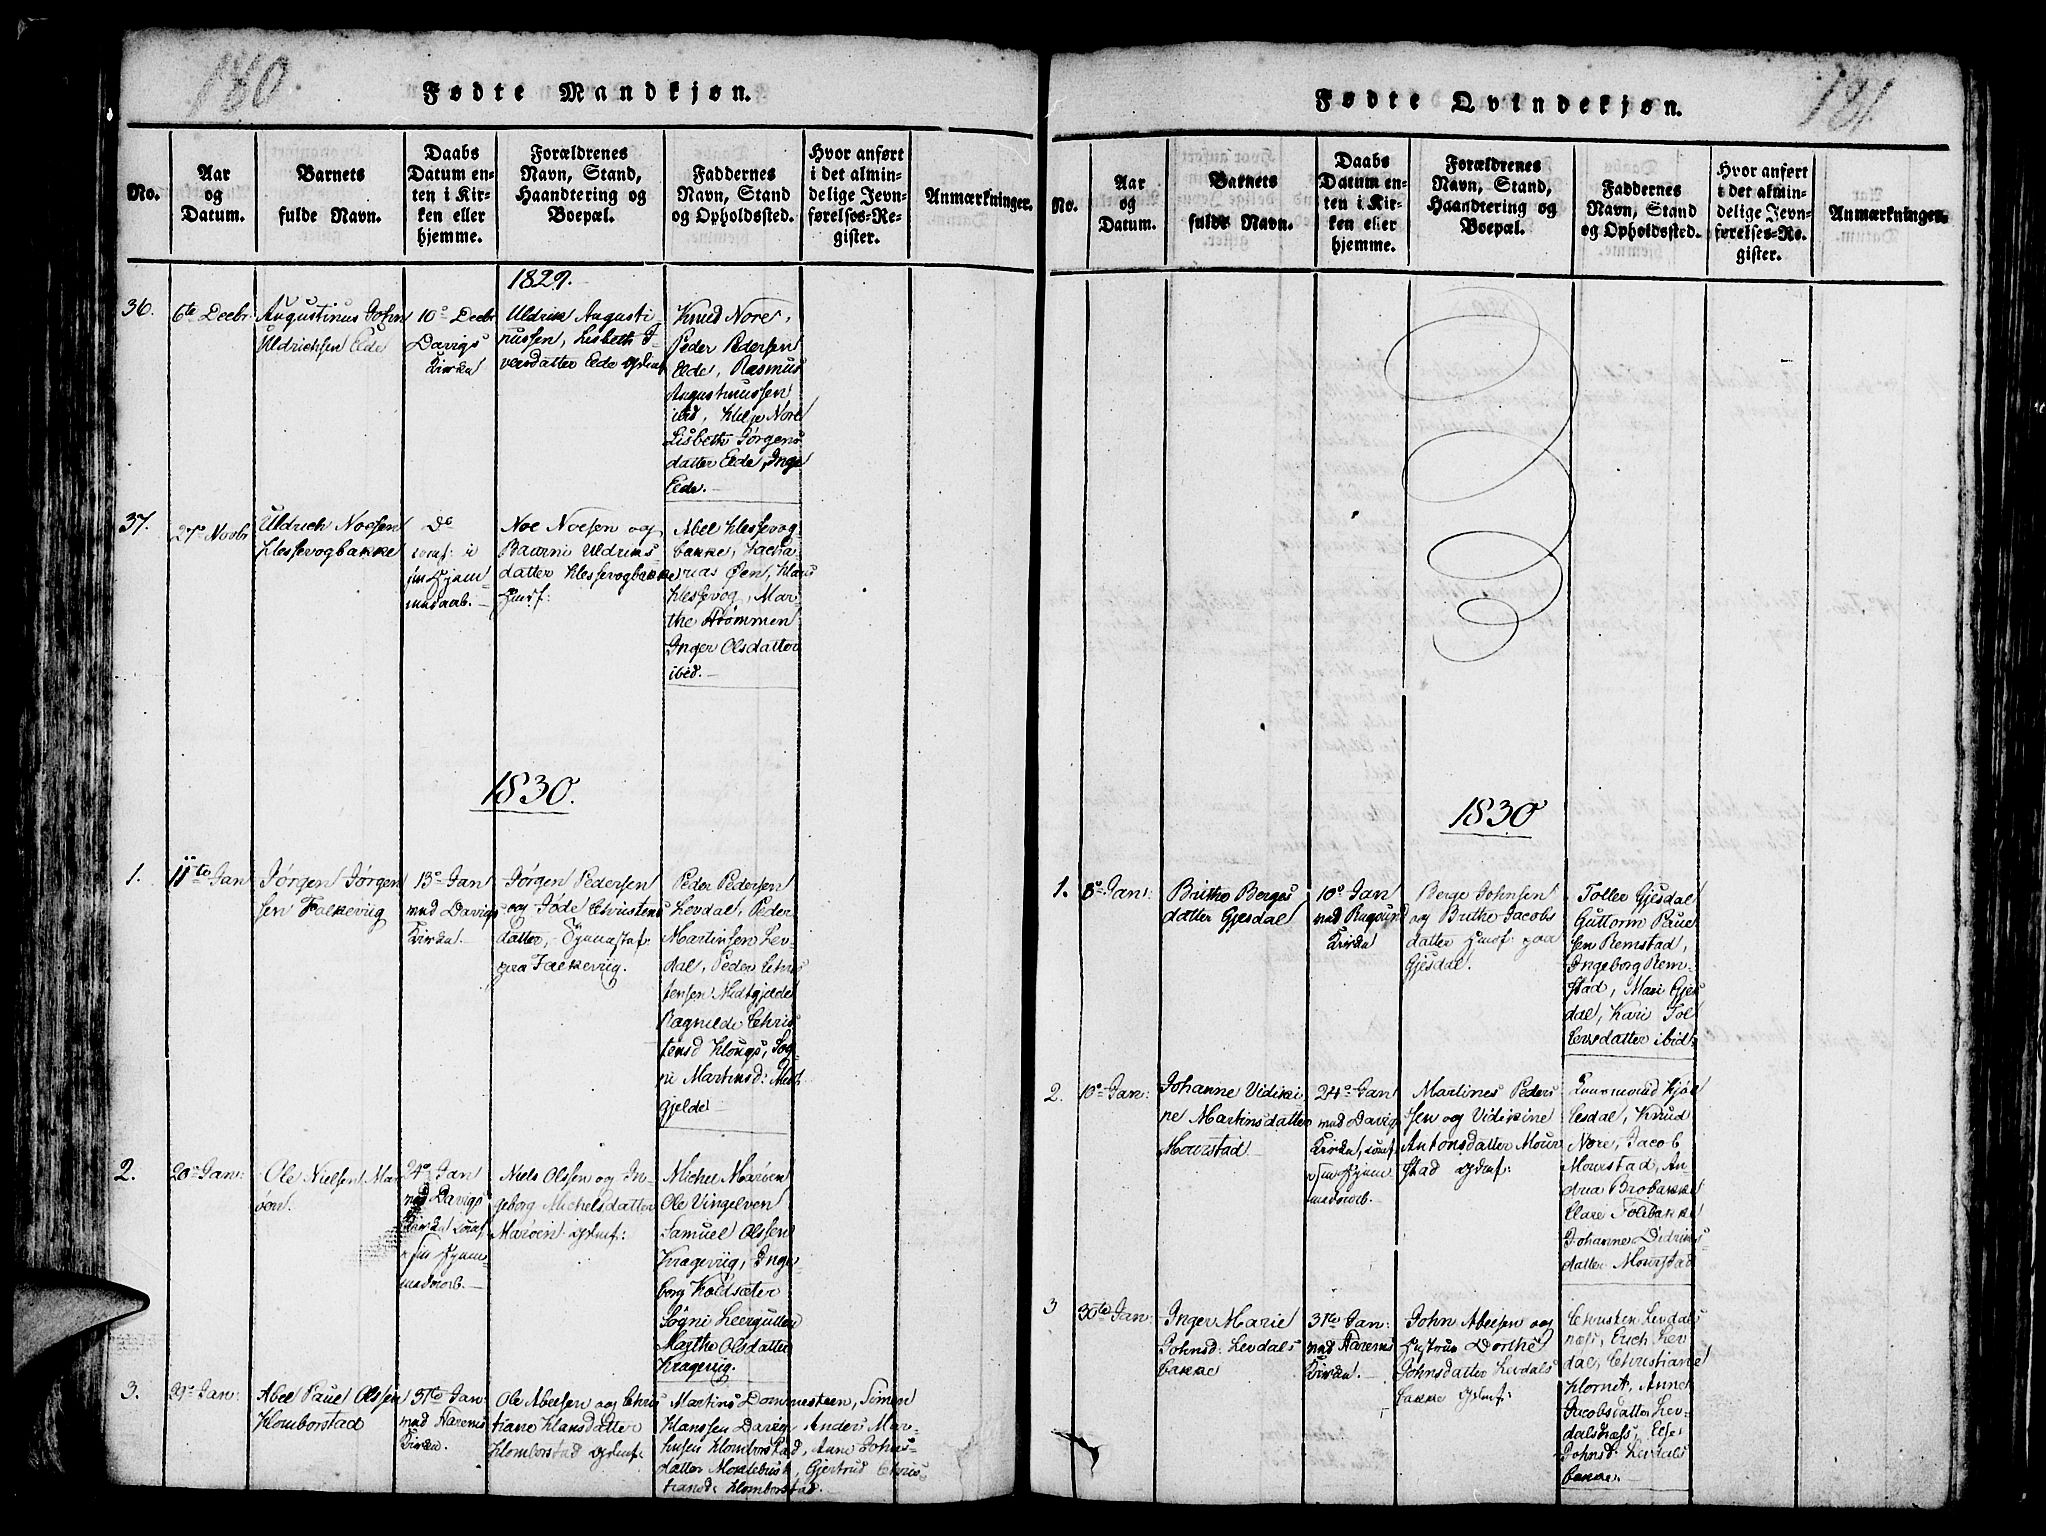 180.
Fødte Mandkjøn.
No.
Aar
og
Datum.
Barnets
fulde Navn.
Daabs
Datum en-
ten i Kir-
ken eller
hjemme.
Forældrenes
Navn, Stand,
Haandtering og
Boepæl.
Faddernes
Navn, Stand
og Opholdssted.
Hvor anført
i det almin-
delige Jevn-
førelses-Re-
gister.
Anmærkninger.
1829.
36.
6te Decbr
Augustinus John
Uldrichsen Eide
10de Decbr
Davigs
Kirke
Uldrik Augusti-
nussen, Lisbeth I-
versdatter Eide
Knud Nore,
Peder Pedersen
Eide, Rasmus
Augustinussen
ibid, Helje Nore
Lisbeth Jørgens
datter Eide, Inge
Eide.
37.
27de Novbr
Uldrich Noesen
Hessevogbakke
Do
conf: i
hjem
medaab.
Noe Noesen og
Baarni Uldriks
datter Hessevogbakke
Huusf:
Abel Hessevog
bakke, Zacha-
rias Øen, Hans
Hessevog, Mar-
the Strømmen
Inger Olsdatter
ibid.
1830.
1.
11te Jan
Jørgen Jørgen
sen Falkeviig
13de Jan
ved Davigs
Kirke.
Jørgen Pedersen
og Jøde Christens
datter,
paa Falkeviig.
Peder Pedersen
Levdal, Peder
Martinsen Lev-
dal, Peder Chris
tensen Midtgjelde
Ragnilde Chris
tensd Hougs, Søg-
ni Martinsd: Midt
gjelde
2.
20de Jan:
Ole Nielsen Mar
øen.
24de Jan
ved Davigs
Kirke conf
hjem-
medaab.
Niels Olssen og In-
geborg Michelsdatter
Marøen
Michel Marøen
Ole Vingelven
Samuel Olssen
Krageviig, Inge-
borg Koldsæter
Søgni Leergutten
Marthe Olsdatter
Kragevig.
3.
29de Jan:
Abel Paul Olssen
Homborstad
31te Jan
ved Harems
Kirke.
Ole Abelsen og Chris
tiane Hansdatter
Homborstad
Martins Dommesteen, Simen
Hanssen Davig, Anders Mar-
Homborstad, Anne Johns-
datter Moldebust, Gjertrud Chris-
tiansd: Homborstad.
181.
Fødte Qvindekjøn.
No.
Aar
og
Datum.
Barnets
fulde Navn.
Daabs
Datum en-
ten i Kir-
ken eller
hjemme.
Forældrenes
Navn, Stand,
Haandtering og
Boepæl.
Faddernes
Navn, Stand
og Opholdssted.
Hvor anført
i det almin-
delige Jevn-
førelses-Re-
gister.
Anmærkninger.
1830
1.
8de Jan:
Brithe Berges
datter Gjesdal
10de Jan
ved Rugsund
Kirke
Berge Johnsen
og Brithe Jacobs
datter Huusf: paa
Gjesdal.
Toller Gjesdal
Guttorm Paul
sen Remstad,
Ingeborg Rem-
stad, Mari Gjes
dal, Kari Tol
lersdatter ibid:
2.
10de Jan:
Johanne Vidiki
ne Martinsdatter
Mourstad
24de Jan
ved Davigs
Kirke, conf
hjem
medaab.
Martines Peders
sen og Vidikine
Antonsdatter Mour
stad
Kjøl
lesdal, Knud
Nore, Jacob
Mourstad, An
drea Brobakke
Johanne Didriks-
datter Mourstad
3
30te Jan:
Inger Marie
Johnsd: Levdals
bakke
31te Jan:
ved Harems
Kirke.
John Abelsen og
Hustrue Dorthe
Johnsdatter Levdals
bakke
Christen Levdals
næss, Erich Lev
dal, Christiane
Hornet, Anne
Jacobsdatter Lev-
dalsnæss, Else
Johnsd: Levdals
bakke.